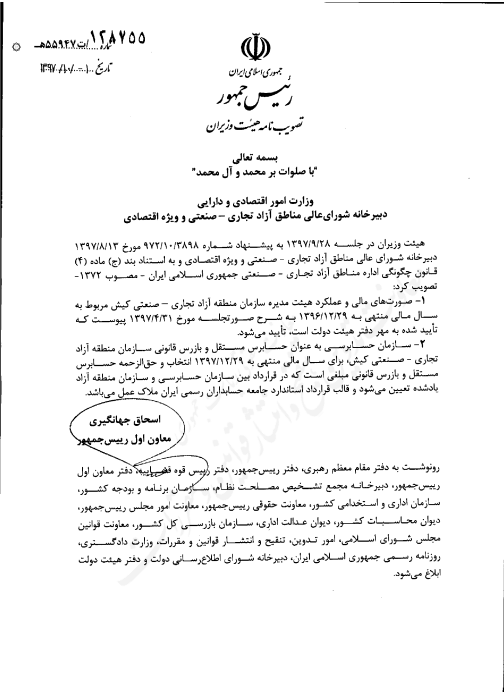 شماره ۱۲۸۷۵۵/ت۵۵۹۴۷هـ
تاریخ ۱۳۹۷/۱۰/۰۱
جمهوری اسلامی ایران
رئیس جمهور
تصویب نامه هیئت وزیران
بسمه تعالی
"با صلوات بر محمد و آل محمد"
وزارت امور اقتصادی و دارایی
دبیرخانه شورای‌عالی مناطق آزاد تجاری – صنعتی و ویژه اقتصادی
هیئت وزیران در جلسه ۱۳۹۷/۹/۲۸ به پیشنهاد شماره ۹۷۲/۱۰/۳۸۹۸ مورخ ۱۳۹۷/۸/۱۳
دبیرخانه شورای عالی مناطق آزاد تجاری – صنعتی و ویژه اقتصادی و به استناد بند (ج) ماده (۴)
قانون چگونگی اداره مناطق آزاد تجاری – صنعتی جمهوری اسلامی ایران – مصوب ۱۳۷۲-
تصویب کرد:
۱– صورت‌های مالی و عملکرد هیئت مدیره سازمان منطقه آزاد تجاری – صنعتی کیش مربوط به
سال مالی منتهی به ۱۳۹۶/۱۲/۲۹ به شرح صورتجلسه مورخ ۱۳۹۷/۴/۳۱ پیوست که
تأیید شده به مهر دفتر هیئت دولت است، تأیید می‌شود.
۲– سازمان حسابرسی به عنوان حسابرس مستقل و بازرس قانونی سازمان منطقه آزاد
تجاری – صنعتی کیش، برای سال مالی منتهی به ۱۳۹۷/۱۲/۲۹ انتخاب و حق‌الزحمه حسابرس
مستقل و بازرس قانونی مبلغی است که در قرارداد بین سازمان حسابرسی و سازمان منطقه آزاد
یادشده تعیین می‌شود و قالب قرارداد استاندارد جامعه حسابداران رسمی ایران ملاک عمل می‌باشد.
اسحاق جهانگیری
معاون اول رییس‌جمهور
رونوشت به دفتر مقام معظم رهبری، دفتر رییس‌جمهور، دفتر رییس قوه قضاییه، دفتر معاون اول
رییس‌جمهور، دبیرخانه مجمع تشخیص مصلحت نظام، سازمان برنامه و بودجه کشور،
سازمان اداری و استخدامی کشور، معاونت حقوقی رییس‌جمهور، معاونت امور مجلس رییس‌جمهور،
دیوان محاسبات کشور، دیوان عدالت اداری، سازمان بازرسی کل کشور، معاونت قوانین
مجلس شورای اسلامی، امور تدوین، تنقیح و انتشار قوانین و مقررات، وزارت دادگستری،
روزنامه رسمی جمهوری اسلامی ایران، دبیرخانه شورای اطلاع‌رسانی دولت و دفتر هیئت دولت
ابلاغ می‌شود.